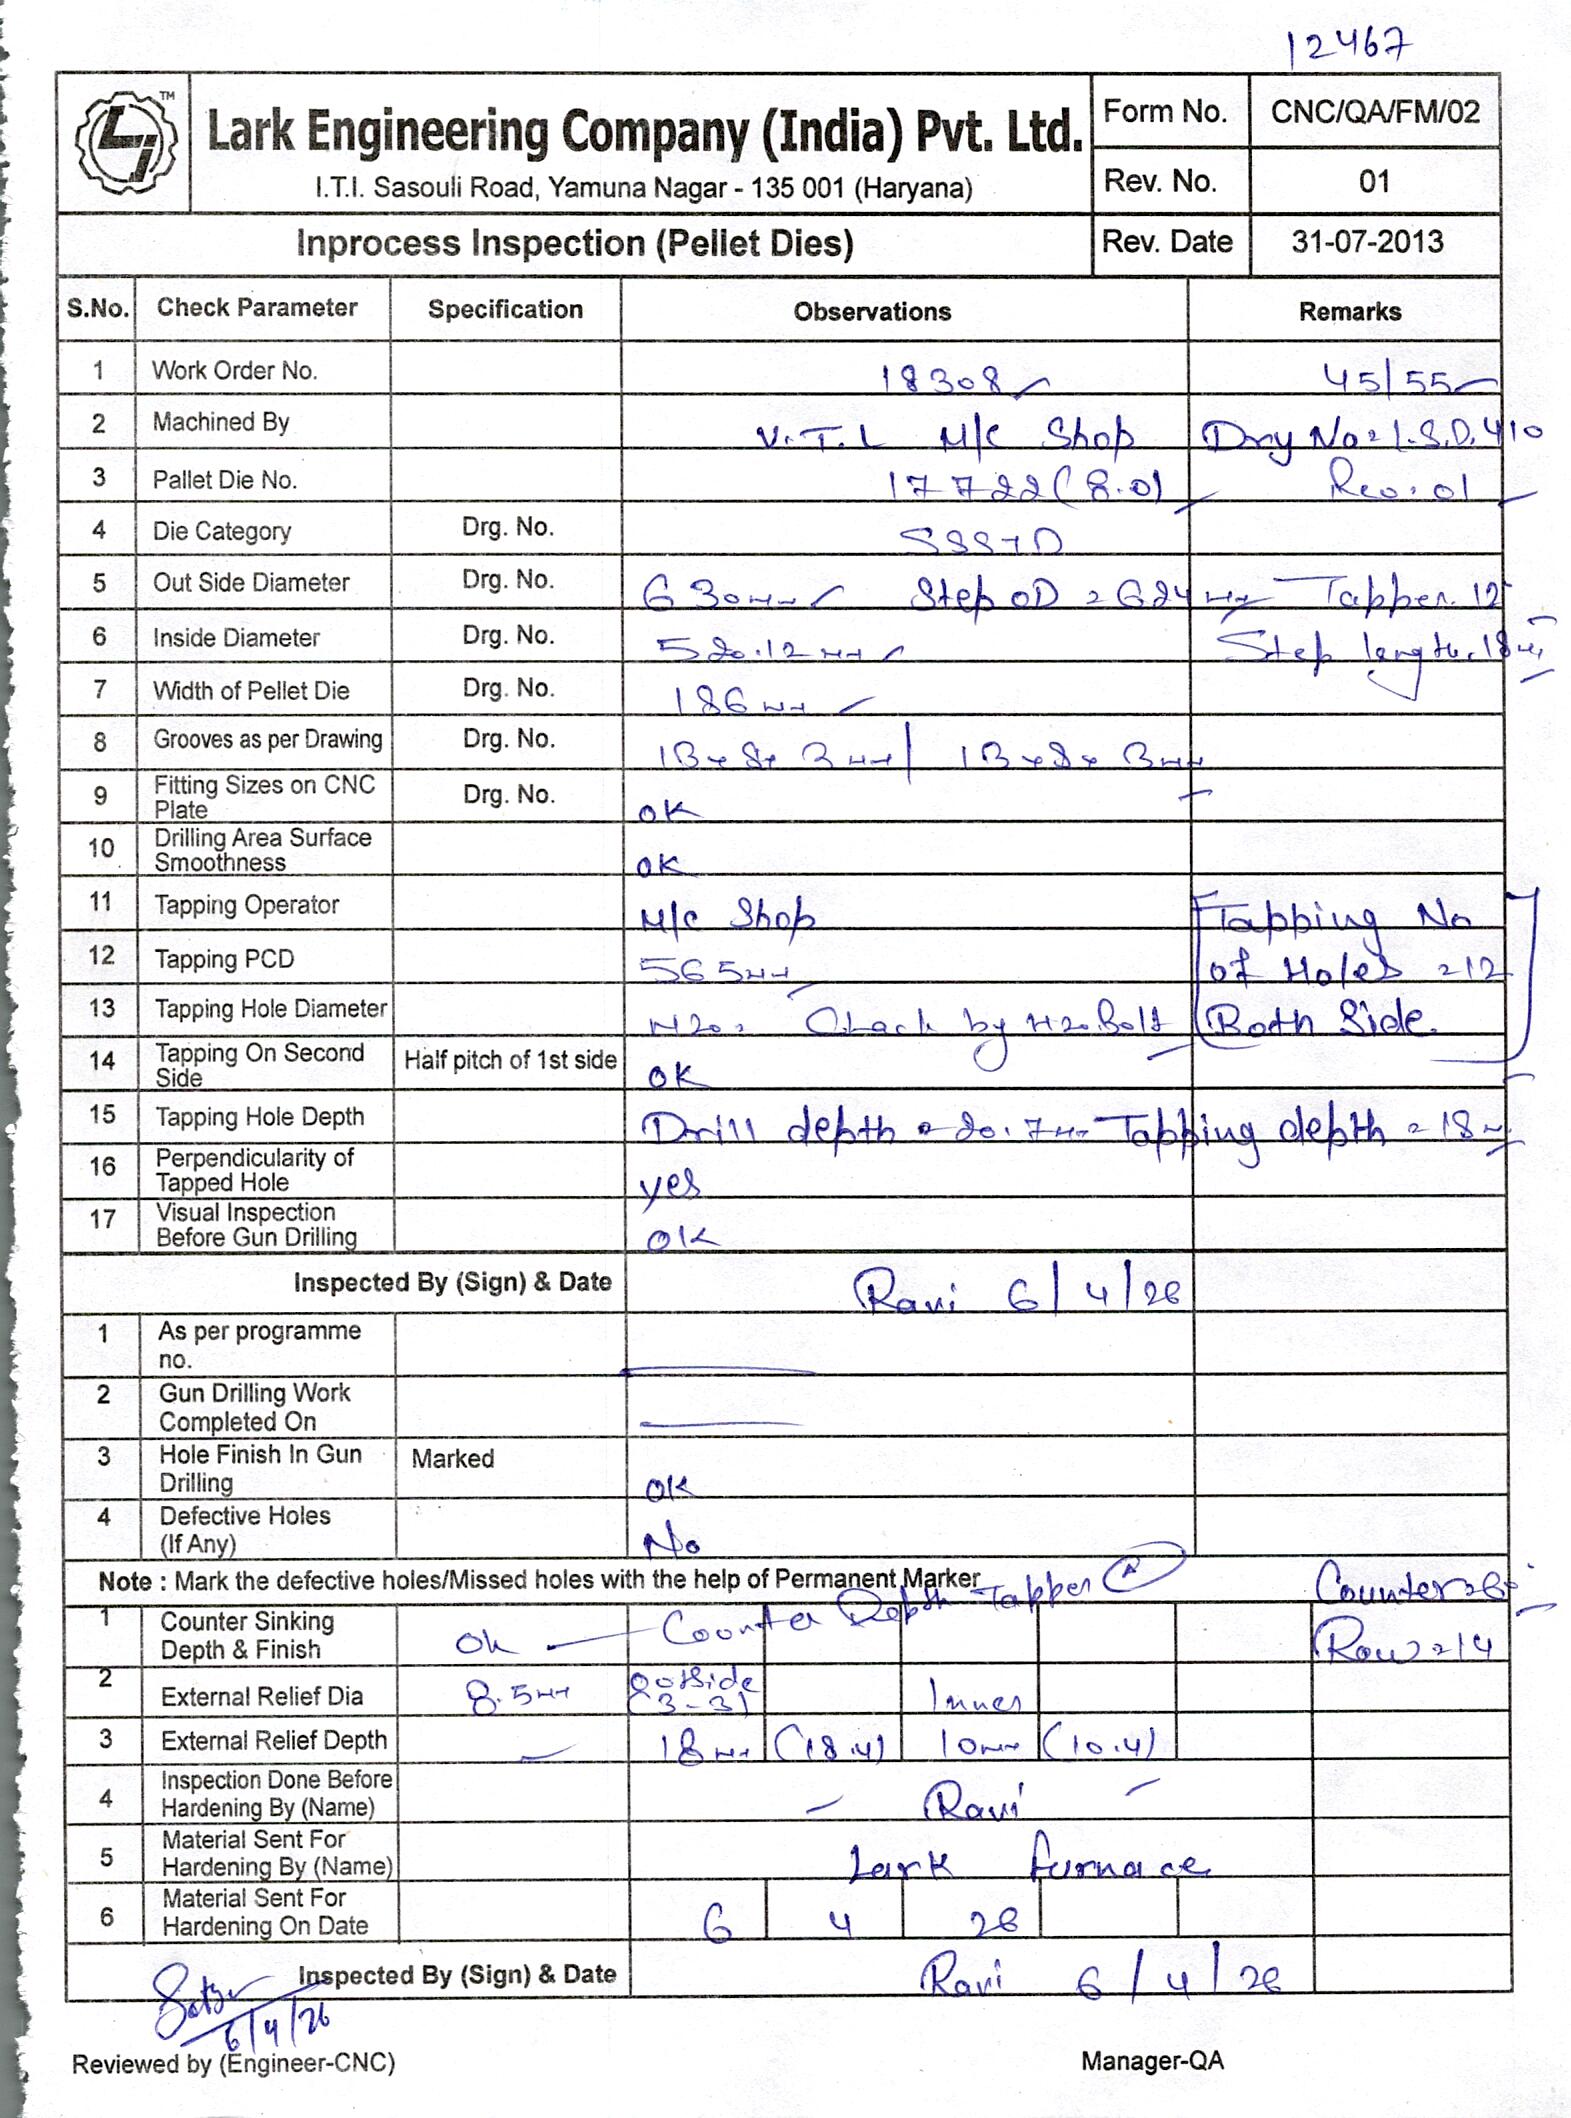 12467
LJ TM
Lark Engineering Company (India) Pvt. Ltd.
I.T.I. Sasouli Road, Yamuna Nagar - 135 001 (Haryana)
Form No. CNC/QA/FM/02
Rev. No. 01
Inprocess Inspection (Pellet Dies) Rev. Date 31-07-2013
S.No. Check Parameter Specification Observations Remarks
1 Work Order No. 18308 45/55
2 Machined By V.T.L M/C Shop Drg No = L.S.D. 410
3 Pallet Die No. 17722 (8.0) Rev. 01
4 Die Category Drg. No. SSSTD
5 Out Side Diameter Drg. No. 630mm Step OD = 624mm Tapper. 12
6 Inside Diameter Drg. No. 520.12mm Step length. 18mm
7 Width of Pellet Die Drg. No. 186mm
8 Grooves as per Drawing Drg. No. 13x8x3mm/ 13x8x3mm
9 Fitting Sizes on CNC Plate Drg. No. OK
10 Drilling Area Surface Smoothness OK
11 Tapping Operator M/C Shop Tapping No
12 Tapping PCD 565mm of Holes = 12
13 Tapping Hole Diameter M20 = Chack by M20 Bolt Both Side.
14 Tapping On Second Side Half pitch of 1st side OK
15 Tapping Hole Depth Drill depth = 20.7mm Tapping depth = 18mm
16 Perpendicularity of Tapped Hole yes
17 Visual Inspection Before Gun Drilling OK
Inspected By (Sign) & Date Ravi 6/4/26
1 As per programme no.
2 Gun Drilling Work Completed On
3 Hole Finish In Gun Drilling Marked OK
4 Defective Holes (If Any) No
Note : Mark the defective holes/Missed holes with the help of Permanent Marker
1 Counter Sinking Depth & Finish Ok Counter Depth Tapper A Row = 14
2 External Relief Dia 8.5mm Outside (3-3) Inner
3 External Relief Depth 18mm (18.4) 10mm (10.4)
4 Inspection Done Before Hardening By (Name) Ravi
5 Material Sent For Hardening By (Name) Lark furnace
6 Material Sent For Hardening On Date 6 4 26
Inspected By (Sign) & Date Ravi 6/4/26
6/4/26
Reviewed by (Engineer-CNC) Manager-QA